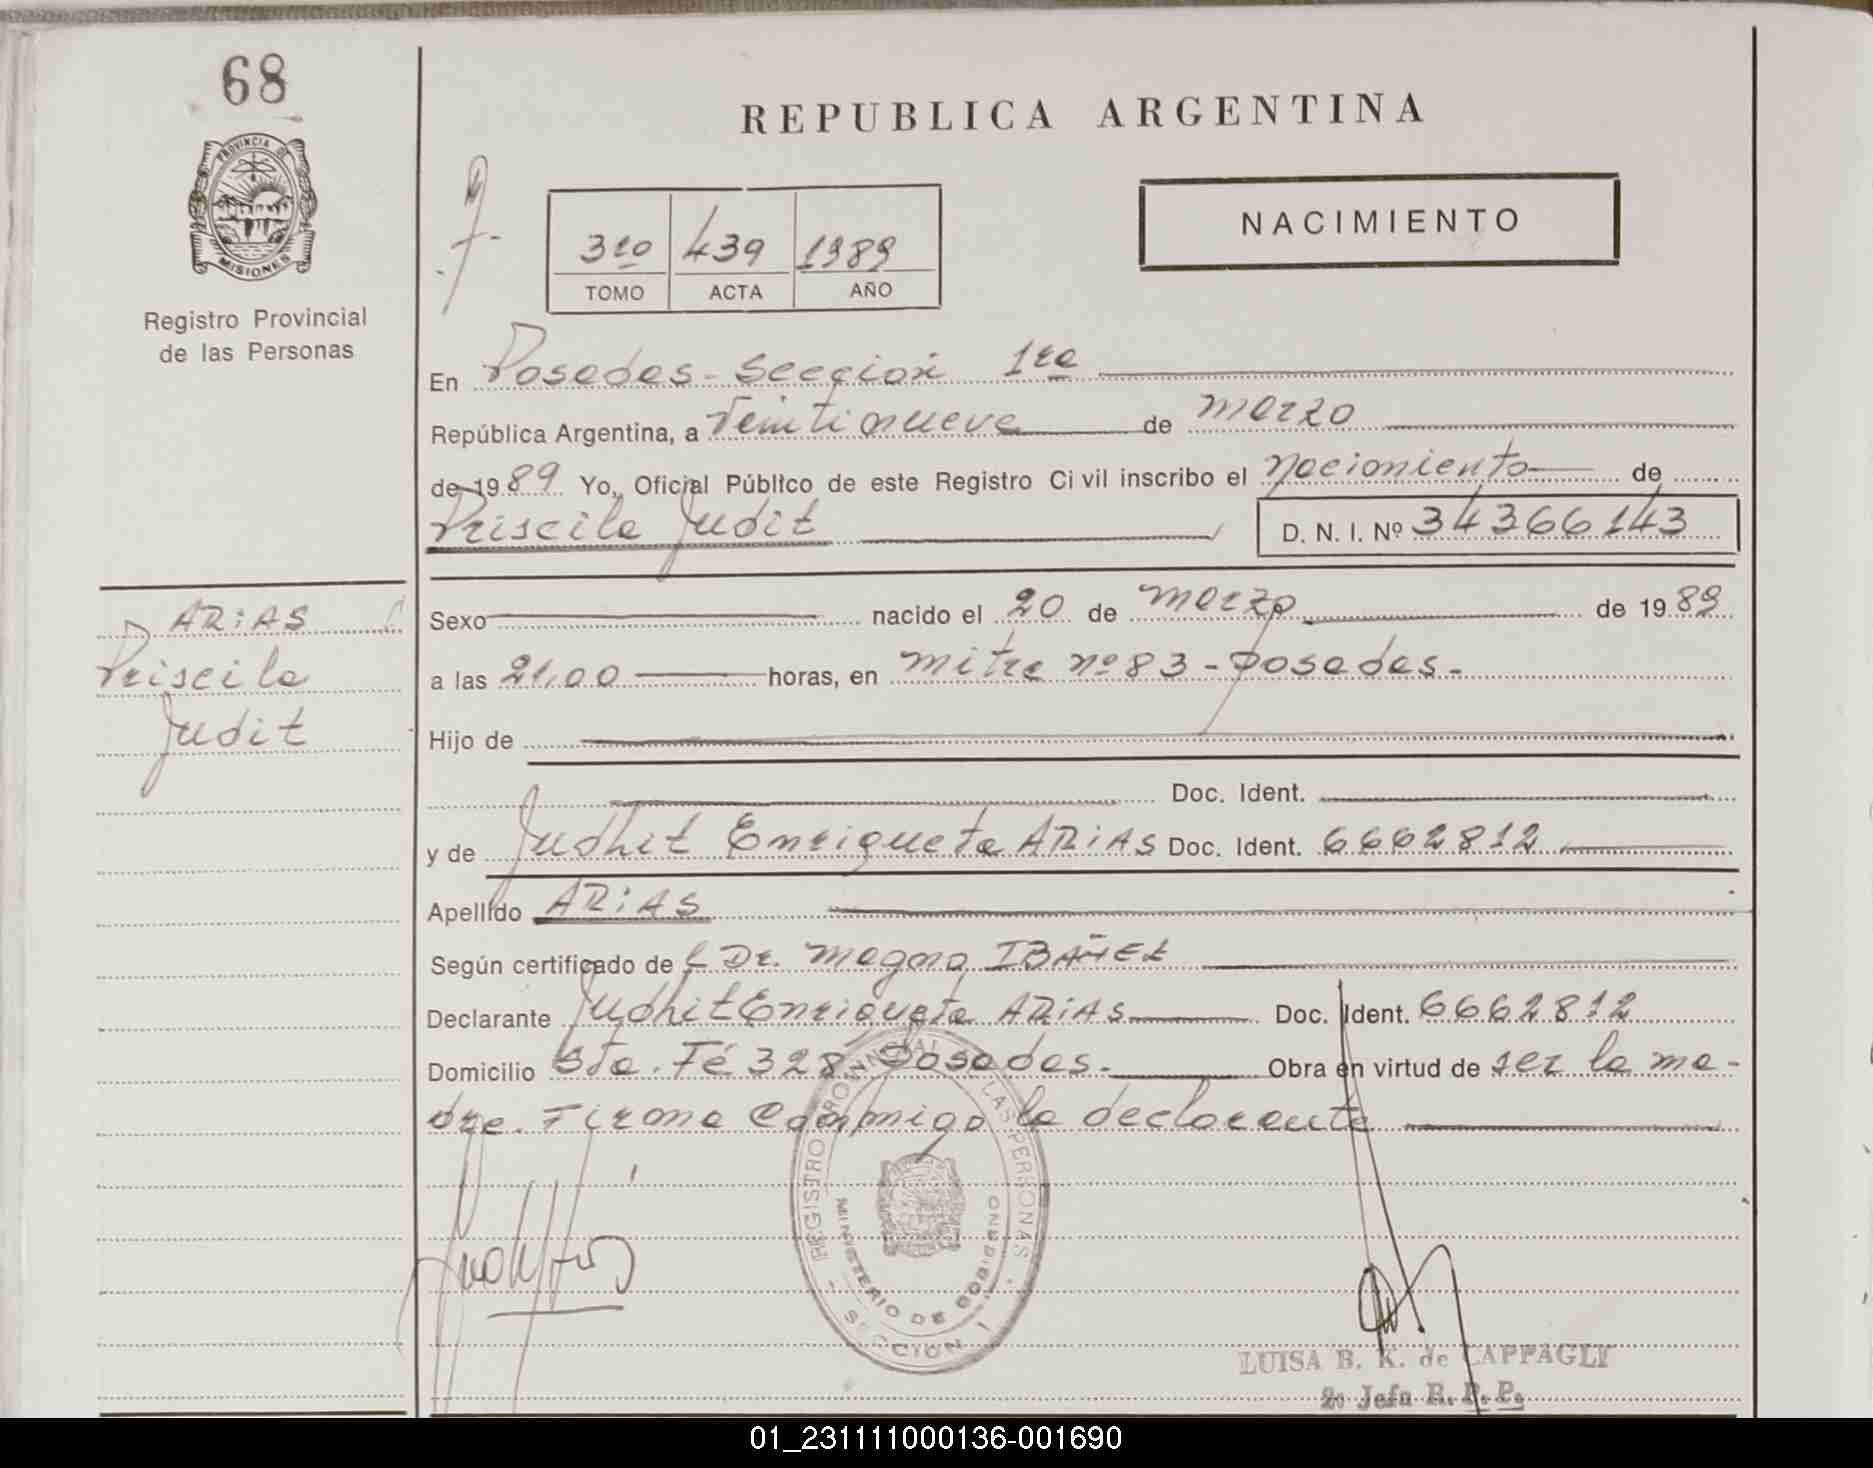 68
REPUBLICA ARGENTINA
PROVINCIA DE
MISIONES
Registro Provincial
de las Personas
NACIMIENTO
3ro 439 1989
TOMO ACTA AÑO
En Posadas - Sección 1ra
República Argentina, a Veintinueve de marzo
de 1989 Yo, Oficial Público de este Registro Civil inscribo el Nacimiento de
Priscila Judit D. N. I. Nº 34366143
ARiAS
Priscila
Judit
Sexo nacido el 20 de marzo de 1989
a las 21,00 horas, en mitre nº 83 - posadas.
Hijo de
Doc. Ident.
y de Judhit Enriqueta ARiAS Doc. Ident. 6662812
Apellido ARiAS
Según certificado de Dr. Magno IBAÑEZ
Declarante Judhit Enriqueta ARiAS Doc. Ident. 6662812
Domicilio Sta. Fé 328 - Posadas. Obra en virtud de ser la ma-
dre. Firma Conmigo la declarante
REGISTRO PROVINCIAL LAS PERSONAS
MINISTERIO DE GOBIERNO
SECCION 1
LUISA B. K. de CAPPAGLI
2º Jefa R. P. P.
01_231111000136-001690